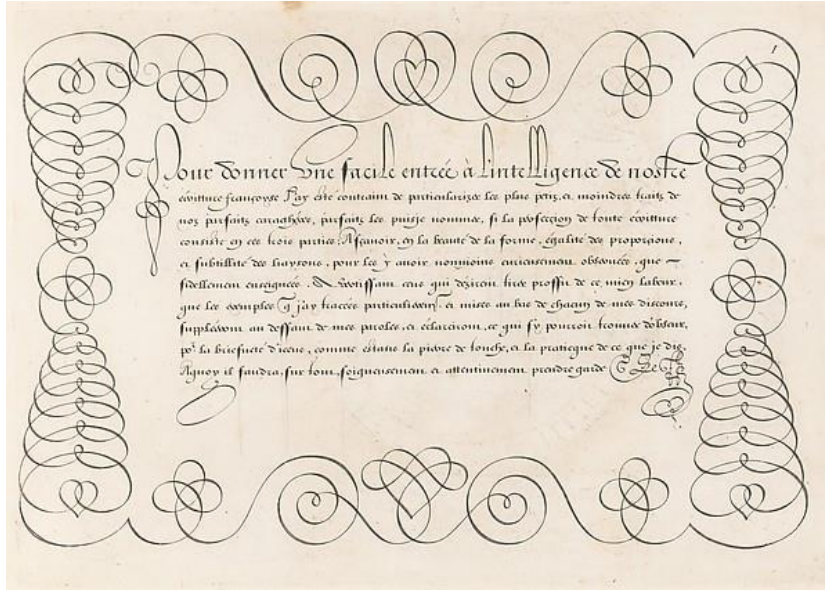 1
Pour donner vne facile entrée à l'intelligence de nostre
écritture françoyse J'ay esté contraint de particularizer les plus petis, et moindres traits de
noz parfaits caractheres, parfaits les puisje nommer, si la perfection de toute écritture
consiste en ces trois parties: Asçauoir, en la beauté de la forme, égalité des proporcions,
et subtillité des liaysons, pour les y auoir nonmoins curieusement obseruées, que
fidellement enseignées. Auertissant ceus qui dezirent tirer proffit de ce mien labeur,
que les exemples q j'ay traccés particulierem.t et mises au bas de chacun de mes discours,
suppléeront au deffaut de mes paroles, et éclarciront, ce qui s'y pourroit trouuer d'obscur,
po.r la briefueté d'iceux, comme estans la pierre de touche, et la praticque de ce que je dis,
Aquoy il faudra, sur tout, soigneusement et attentiuement prendre garde